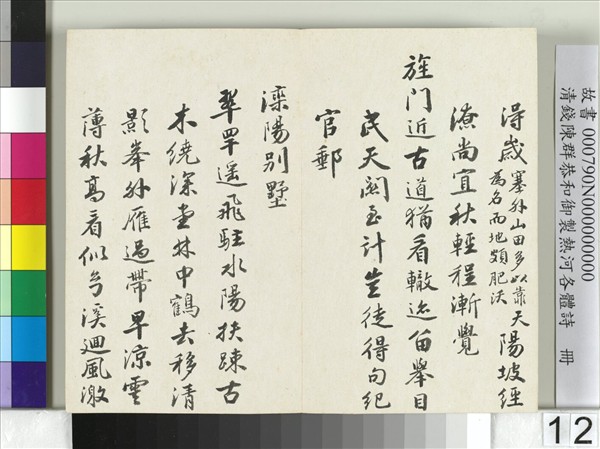 故書 000790N000000000
清錢陳群恭和御製熱河各體詩 冊
得歲塞外山田多以靠天陽坡經
為名而地頗肥沃
潦尚宜秋輕程漸覺
旌門近古道猶看轍迹留舉目
民天關至計豈徒得句紀
官郵
灤陽別墅
翠罕遥飛駐水陽扶踈古
木繞深堂林中鶴去移清
影峯外雁過帶早涼雲
薄秋高看似溪迴風激
12